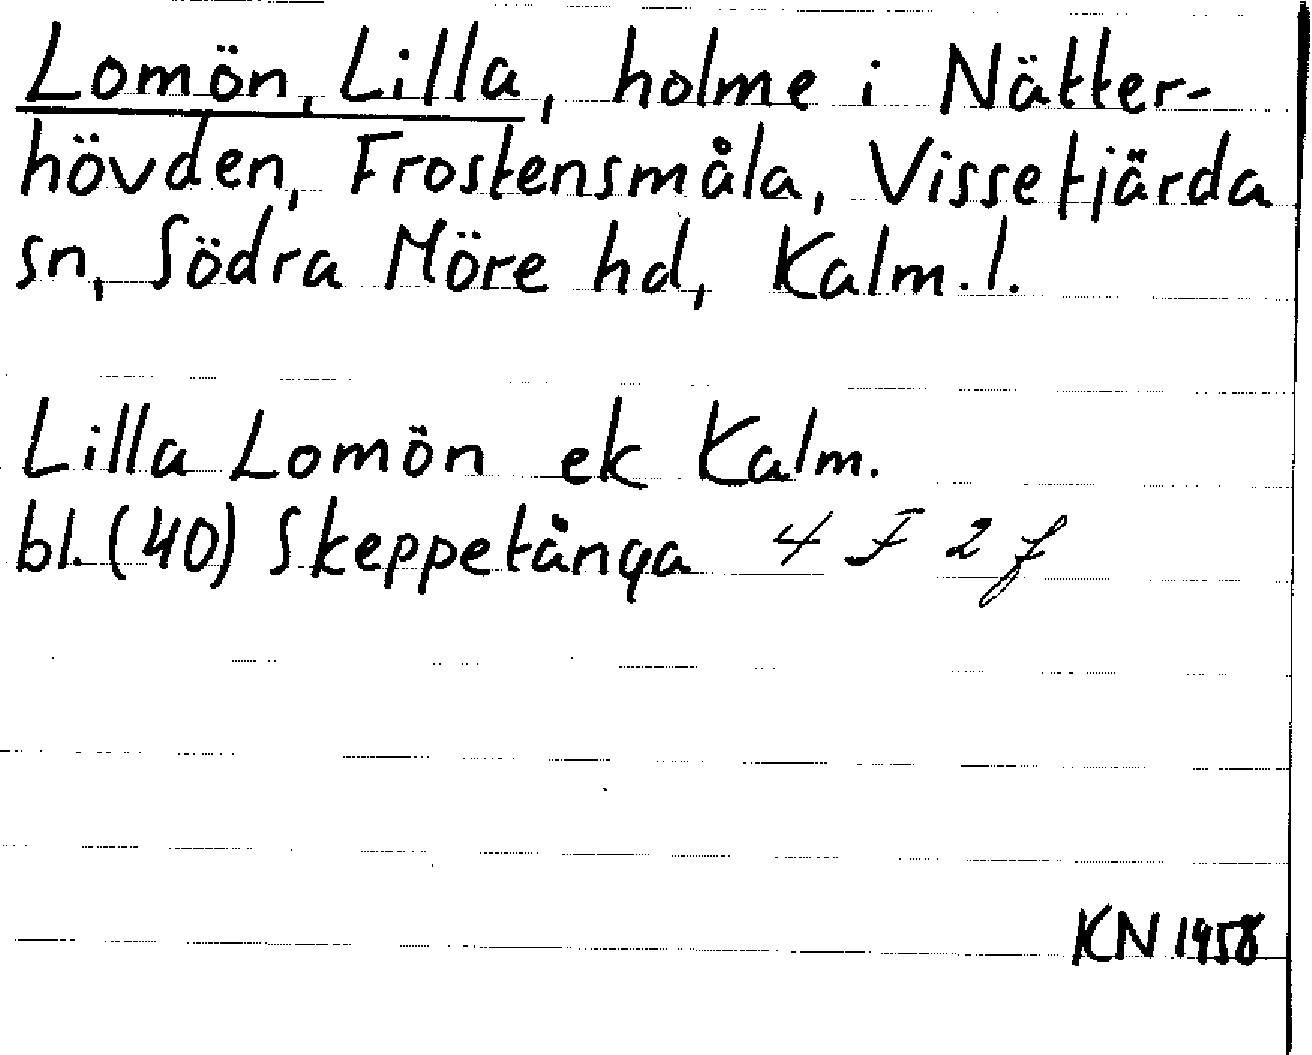 Lomön, Lilla, holme i Nätter-
hövden, Frostensmåla, Vissefjärda
sn, Södra Möre hd, Kalm. l.
Lilla Lomön ek Kalm.
bl. (40) Skeppetånga 4 F 2 f
KN 1958